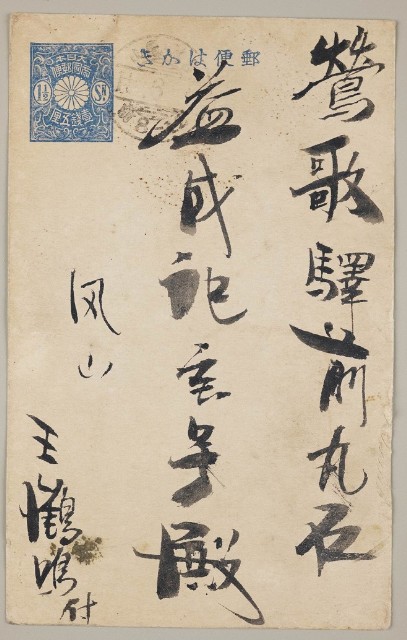 郵便はかき
大日本
帝國郵便
1½ Sn
壹錢五厘
鶯歌驛前丸石
益成記宝号殿
凤山
王鶴鳴付